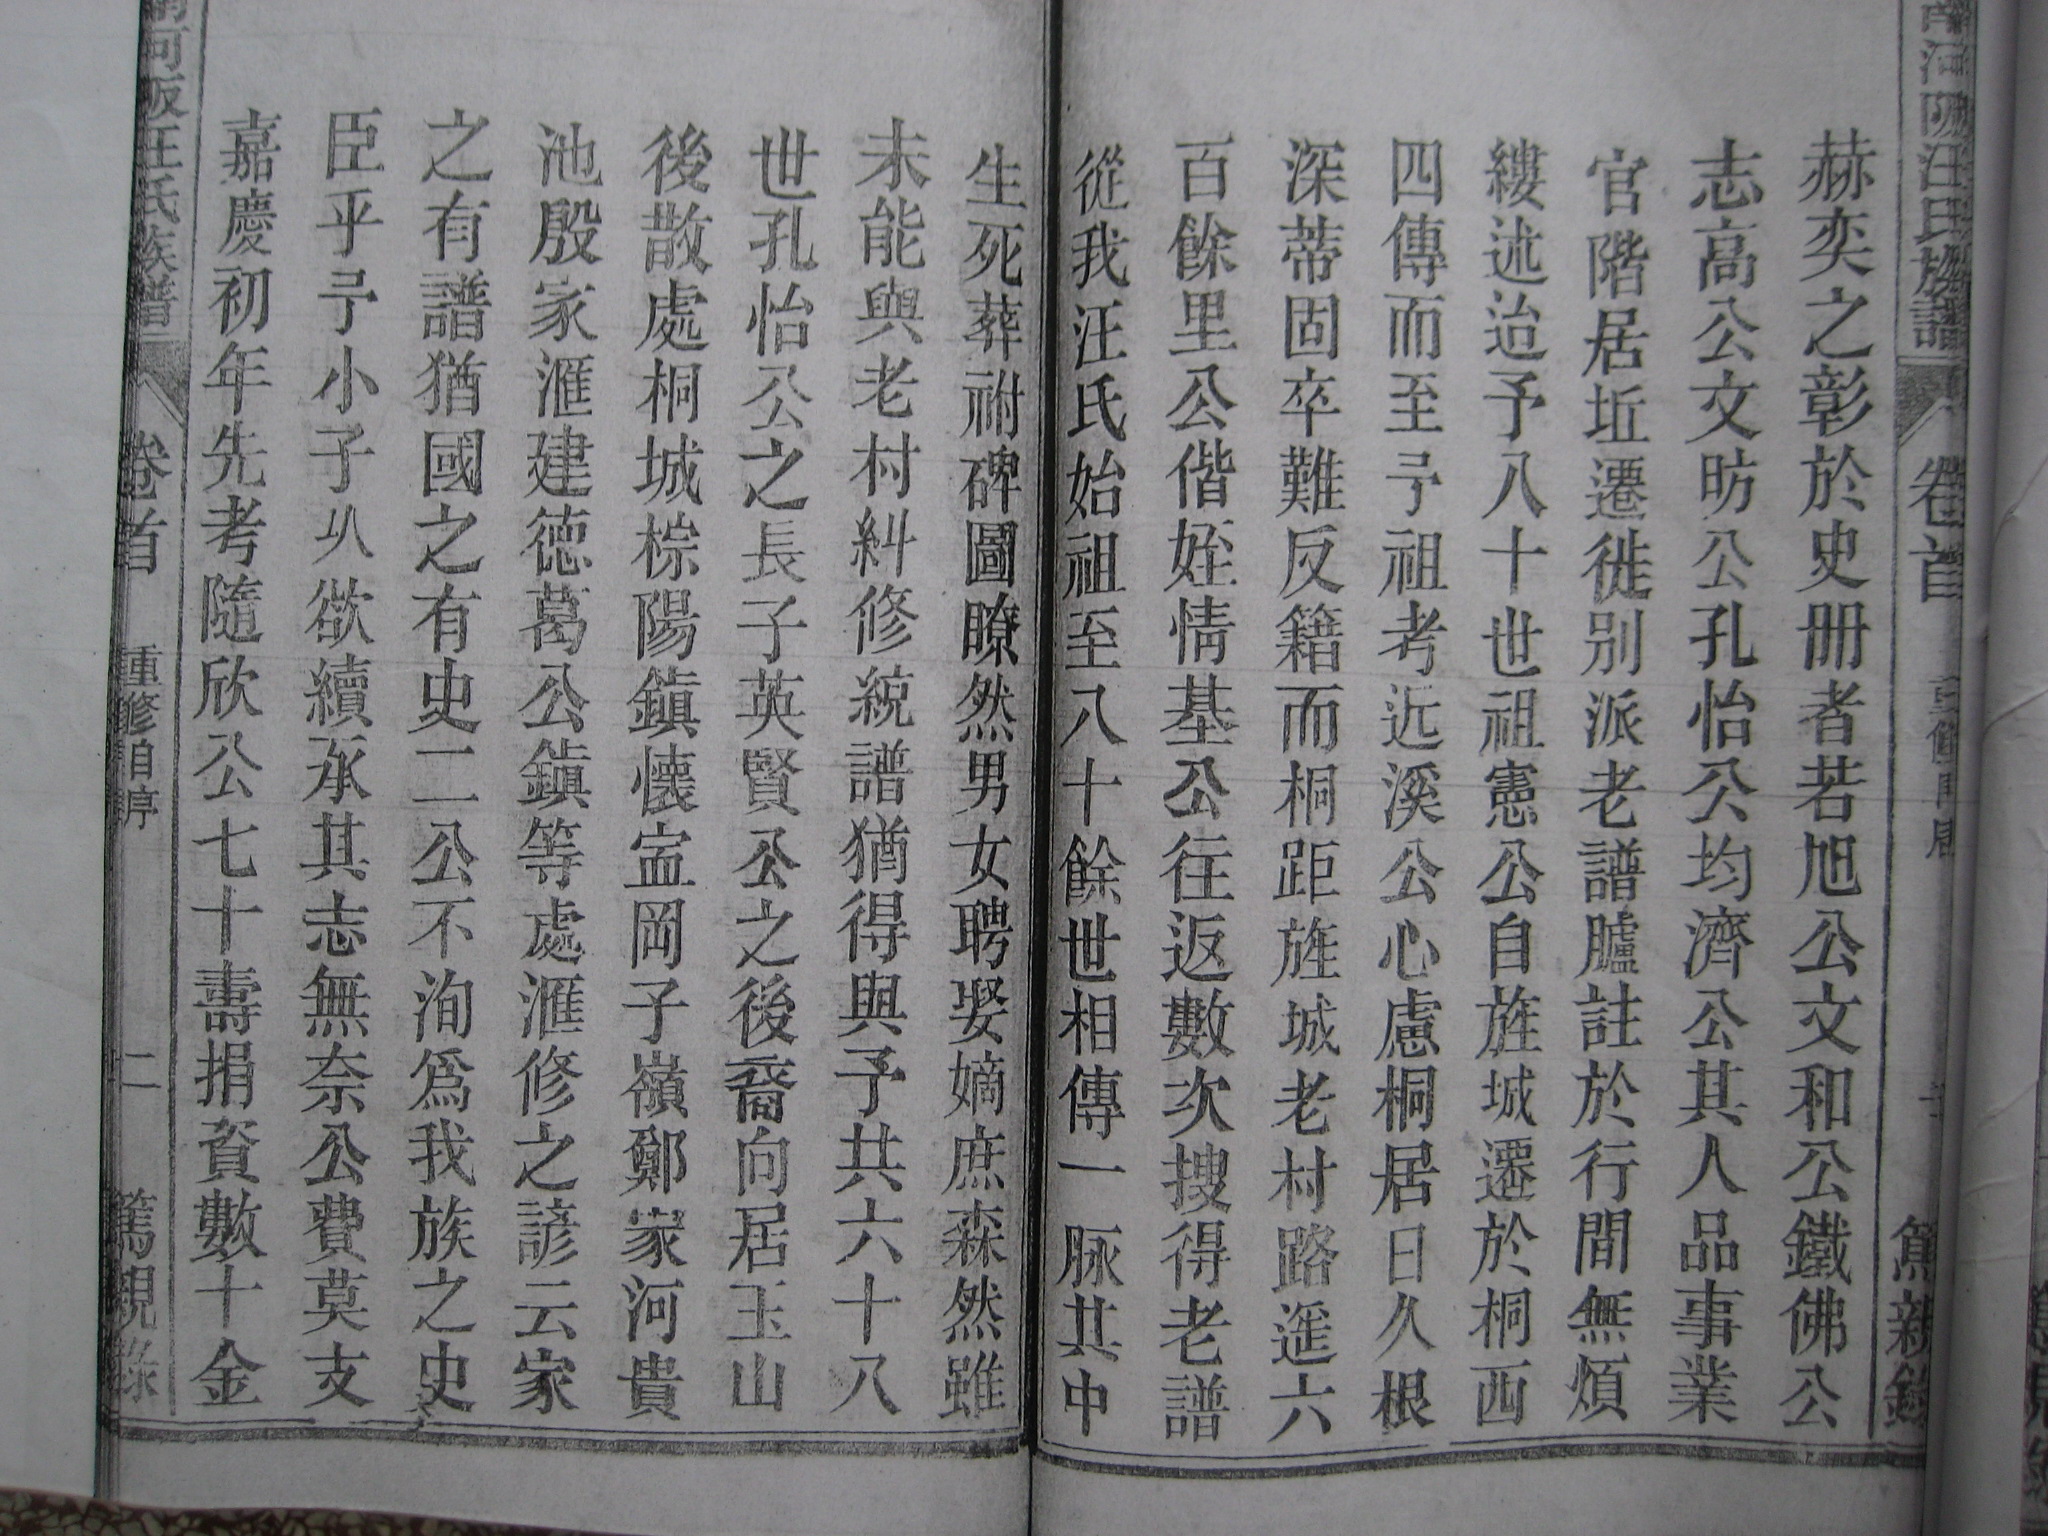 河阪汪氏族譜
卷首
篤親錄
赫奕之彰於史册者若旭公文和公鐵佛公
志高公文昉公孔怡公均濟公其人品事業
官階居址遷徙別派老譜臚註於行間無煩
縷述迨予八十世祖憲公自旌城遷於桐西
四傳而至予祖考近溪公心慮桐居日久根
深蒂固卒難反籍而桐距旌城老村路遥六
百餘里公偕姪情基公往返數次搜得老譜
從我汪氏始祖至八十餘世相傳一脉其中
生死葬祔碑圖瞭然男女聘娶嫡庶森然雖
未能與老村糾修統譜猶得與予共六十八
世孔怡公之長子英賢公之後裔向居玉山
後散處桐城棕陽鎮懷寍岡子嶺鄭家河貴
池殷家滙建德葛公鎭等處滙修之諺云家
之有譜猶國之有史二公不洵爲我族之史
臣乎予小子乆欲續承其志無奈公費莫支
嘉慶初年先考隨欣公七十壽捐資數十金
河阪汪氏族譜
卷首
重修自序
二
篤親錄